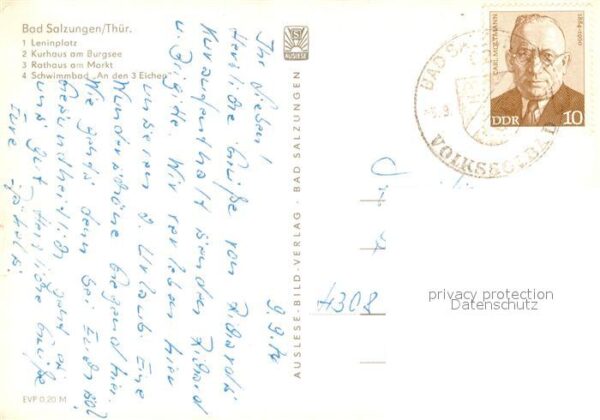 Bad Salzungen/Thür.
1 Leninplatz
2 Kurhaus am Burgsee
3 Rathaus am Markt
4 Schwimmbad „An den 3 Eichen“
Ihr Lieben!
Herzliche Grüße vom
Kuraufenthalt senden
u. Brigitte. Wir verleben hier
unseren 2. Urlaub. Eine
Wunderschöne Gegend hier.
Wie geht's denn bei Euch so?
Gesundheitlich geht es
uns gut. Herzliche Grüße
Eure
9.9.
EVP 0,20 M
AUSLESE-BILD-VERLAG · BAD SALZUNGEN
AUSLESE
BAD SA
VOLKSSOLBAD
CARL MOLTMANN 1884-1960
DDR 10
4308
privacy protection
Datenschutz